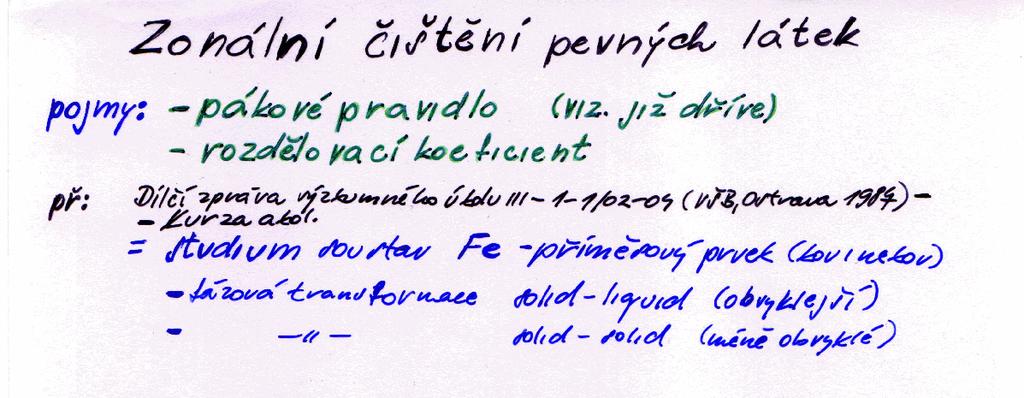 Zonální čištění pevných látek
pojmy: - pákové pravidlo (viz. již dříve)
- rozdělovací koeficient
př: Dílčí zpráva výzkumného úkolu III-1-1/02-04 (VŠB, Ostrava 1984) -
- Kurza a kol.
= studium soustav Fe - příměsový prvek (kov i nekov)
- fázová transformace solid-liquid (obvyklejší)
- -"- solid-solid (méně obvyklé)